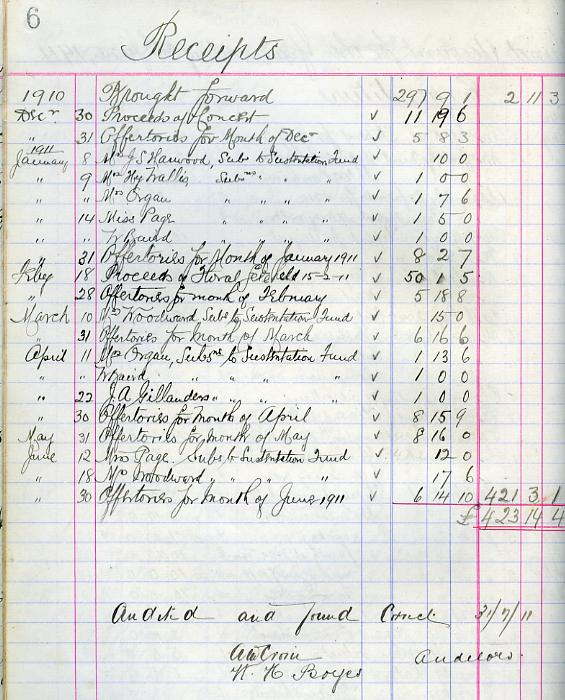 6
Receipts
1910 Brought forward 297 9 1 2 11 3
Decr 30 Proceeds of Concert ✓ 11 19 6
" 31 Offertories for Month of Decr ✓ 5 8 3
1911
January 8 J S Harwood Subs to Sustentation Fund ✓ 10 0
" 9 Wallis Subns " " ✓ 1 0 0
" " Mrs Organ " " " " ✓ 1 7 6
" 14 Miss Page " " " " ✓ 1 5 0
" " W Baird " " " " ✓ 1 0 0
" 31 Offertories for Month of January 1911 ✓ 8 2 7
Feby 18 Proceeds of Floral held 15-2-11 ✓ 50 1 5
" 28 Offertories for month of February ✓ 5 18 8
March 10 Woodward Subs to Sustentation Fund ✓ 15 0
" 31 Offertories for Month of March ✓ 6 16 6
April 11 Mrs Organ, Subsns to Sustentation Fund ✓ 1 13 6
" " W Baird " " " " ✓ 1 0 0
" 22 J. A Gillanders " " " " ✓ 1 0 0
" 30 Offertories for Month of April ✓ 8 15 9
May 31 Offertories for month of May ✓ 8 16 0
June 12 Page Subs to Sustentation Fund ✓ 12 0
" 18 Woodward " " " ✓ 17 6
" 30 Offertories for Month of June 1911 ✓ 6 14 10 421 3 1
£ 423 14 4
Audited and found Correct 31/7/11
Auditors.